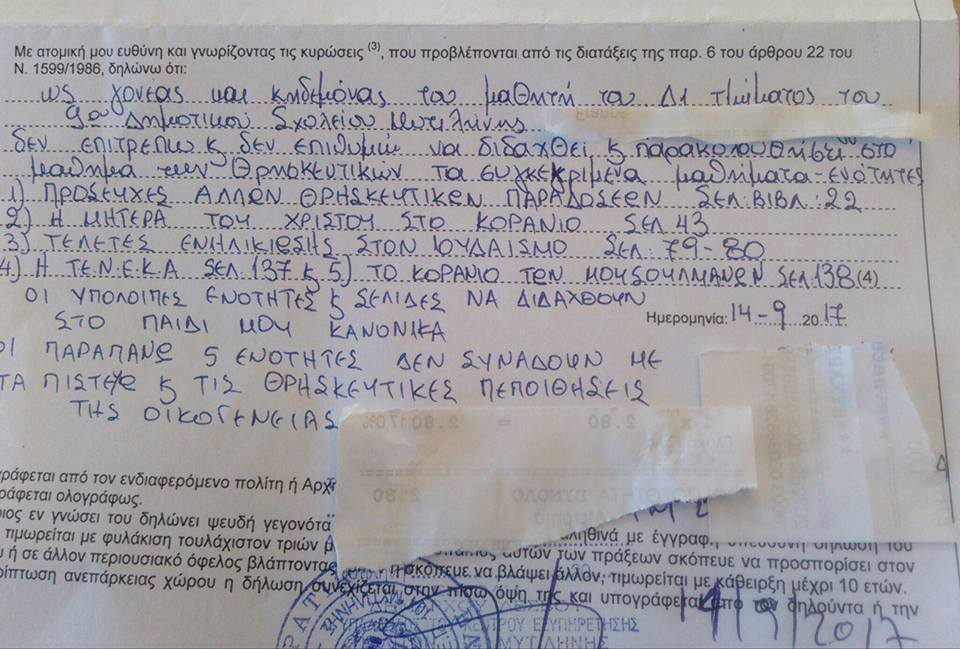 Με ατομική μου ευθύνη και γνωρίζοντας τις κυρώσεις (3), που προβλέπονται από τις διατάξεις της παρ. 6 του άρθρου 22 του
Ν. 1599/1986, δηλώνω ότι:
ως γονέας και κηδεμόνας του μαθητή του Δ1 τμήματος του
9ου Δημοτικού Σχολείου Μυτιλήνης
δεν επιτρέπω & δεν επιθυμώ να διδαχθεί & παρακολουθήσει στο
μάθημα των Θρησκευτικών τα συγκεκριμένα μαθήματα-ενότητες
1) ΠΡΟΣΕΥΧΕΣ ΑΛΛΩΝ ΘΡΗΣΚΕΥΤΙΚΩΝ ΠΑΡΑΔΟΣΕΩΝ ΣΕΛ.ΒΙΒΛ.:22
2) Η ΜΗΤΕΡΑ ΤΟΥ ΧΡΙΣΤΟΥ ΣΤΟ ΚΟΡΑΝΙΟ ΣΕΛ 43
3) ΤΕΛΕΤΕΣ ΕΝΗΛΙΚΙΩΣΗΣ ΣΤΟΝ ΙΟΥΔΑΙΣΜΟ ΣΕΛ: 79-80
4) Η ΤΕ.Ν.Ε.Κ.Α ΣΕΛ.137 & 5) ΤΟ ΚΟΡΑΝΙΟ ΤΩΝ ΜΟΥΣΟΥΛΜΑΝΩΝ ΣΕΛ.138 (4)
ΟΙ ΥΠΟΛΟΙΠΕΣ ΕΝΟΤΗΤΕΣ & ΣΕΛΙΔΕΣ ΝΑ ΔΙΔΑΧΘΟΥΝ
ΣΤΟ ΠΑΙΔΙ ΜΟΥ ΚΑΝΟΝΙΚΑ
Ημερομηνία: 14-9 2017
ΟΙ ΠΑΡΑΠΑΝΩ 5 ΕΝΟΤΗΤΕΣ ΔΕΝ ΣΥΝΑΔΟΥΝ ΜΕ
ΤΑ ΠΙΣΤΕΥΩ & ΤΙΣ ΘΡΗΣΚΕΥΤΙΚΕΣ ΠΕΠΟΙΘΗΣΕΙΣ
ΤΗΣ ΟΙΚΟΓΕΝΕΙΑΣ
ράφεται από τον ενδιαφερόμενο πολίτη ή Αρχ
ράφεται ολογράφως.
ιος εν γνώσει του δηλώνει ψευδή γεγονότα
ληθινά με έγγραφη υπεύθυνη δήλωση του
τιμωρείται με φυλάκιση τουλάχιστον τριών μ
αυτών των πράξεων σκόπευε να προσπορίσει στον
υ ή σε άλλον περιουσιακό όφελος βλάπτοντας
ή σκόπευε να βλάψει άλλον, τιμωρείται με κάθειρξη μέχρι 10 ετών.
ρίπτωση ανεπάρκειας χώρου η δήλωση συνεχίζεται στην πίσω όψη της και υπογράφεται από τον δηλούντα ή την
ΚΕΝΤΡΟΥ ΕΞΥΠΗΡΕΤΗΣΗΣ
ΜΥΤΙΛΗΝΗΣ
14/9/2017